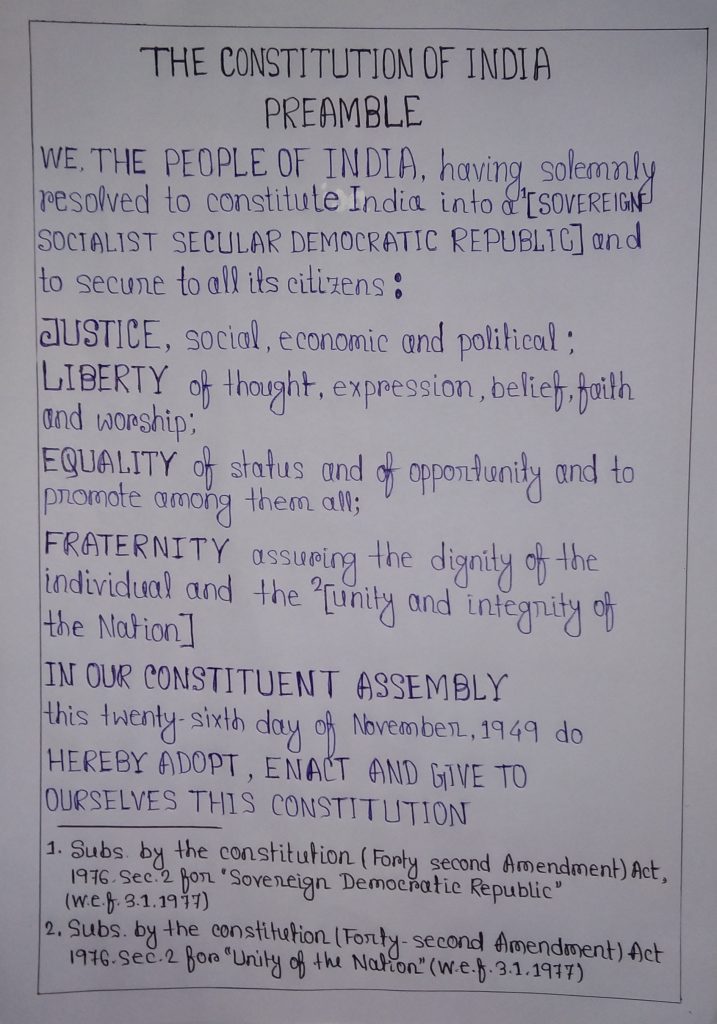 THE CONSTITUTION OF INDIA
PREAMBLE
WE, THE PEOPLE OF INDIA, having solemnly
resolved to constitute India into a ¹[SOVEREIGN
SOCIALIST SECULAR DEMOCRATIC REPUBLIC] and
to secure to all its citizens :
JUSTICE, social, economic and political ;
LIBERTY of thought, expression, belief, faith
and worship;
EQUALITY of status and of opportunity and to
promote among them all;
FRATERNITY assuring the dignity of the
individual and the ²[unity and integrity of
the Nation]
IN OUR CONSTITUENT ASSEMBLY
this twenty-sixth day of November, 1949 do
HEREBY ADOPT, ENACT AND GIVE TO
OURSELVES THIS CONSTITUTION
1. Subs. by the constitution (Forty second Amendment) Act,
1976. Sec. 2 for "Sovereign Democratic Republic"
(w.e.f. 3.1.1977)
2. Subs. by the constitution (Forty-second Amendment) Act
1976. Sec. 2 for "Unity of the Nation" (w.e.f. 3.1.1977)